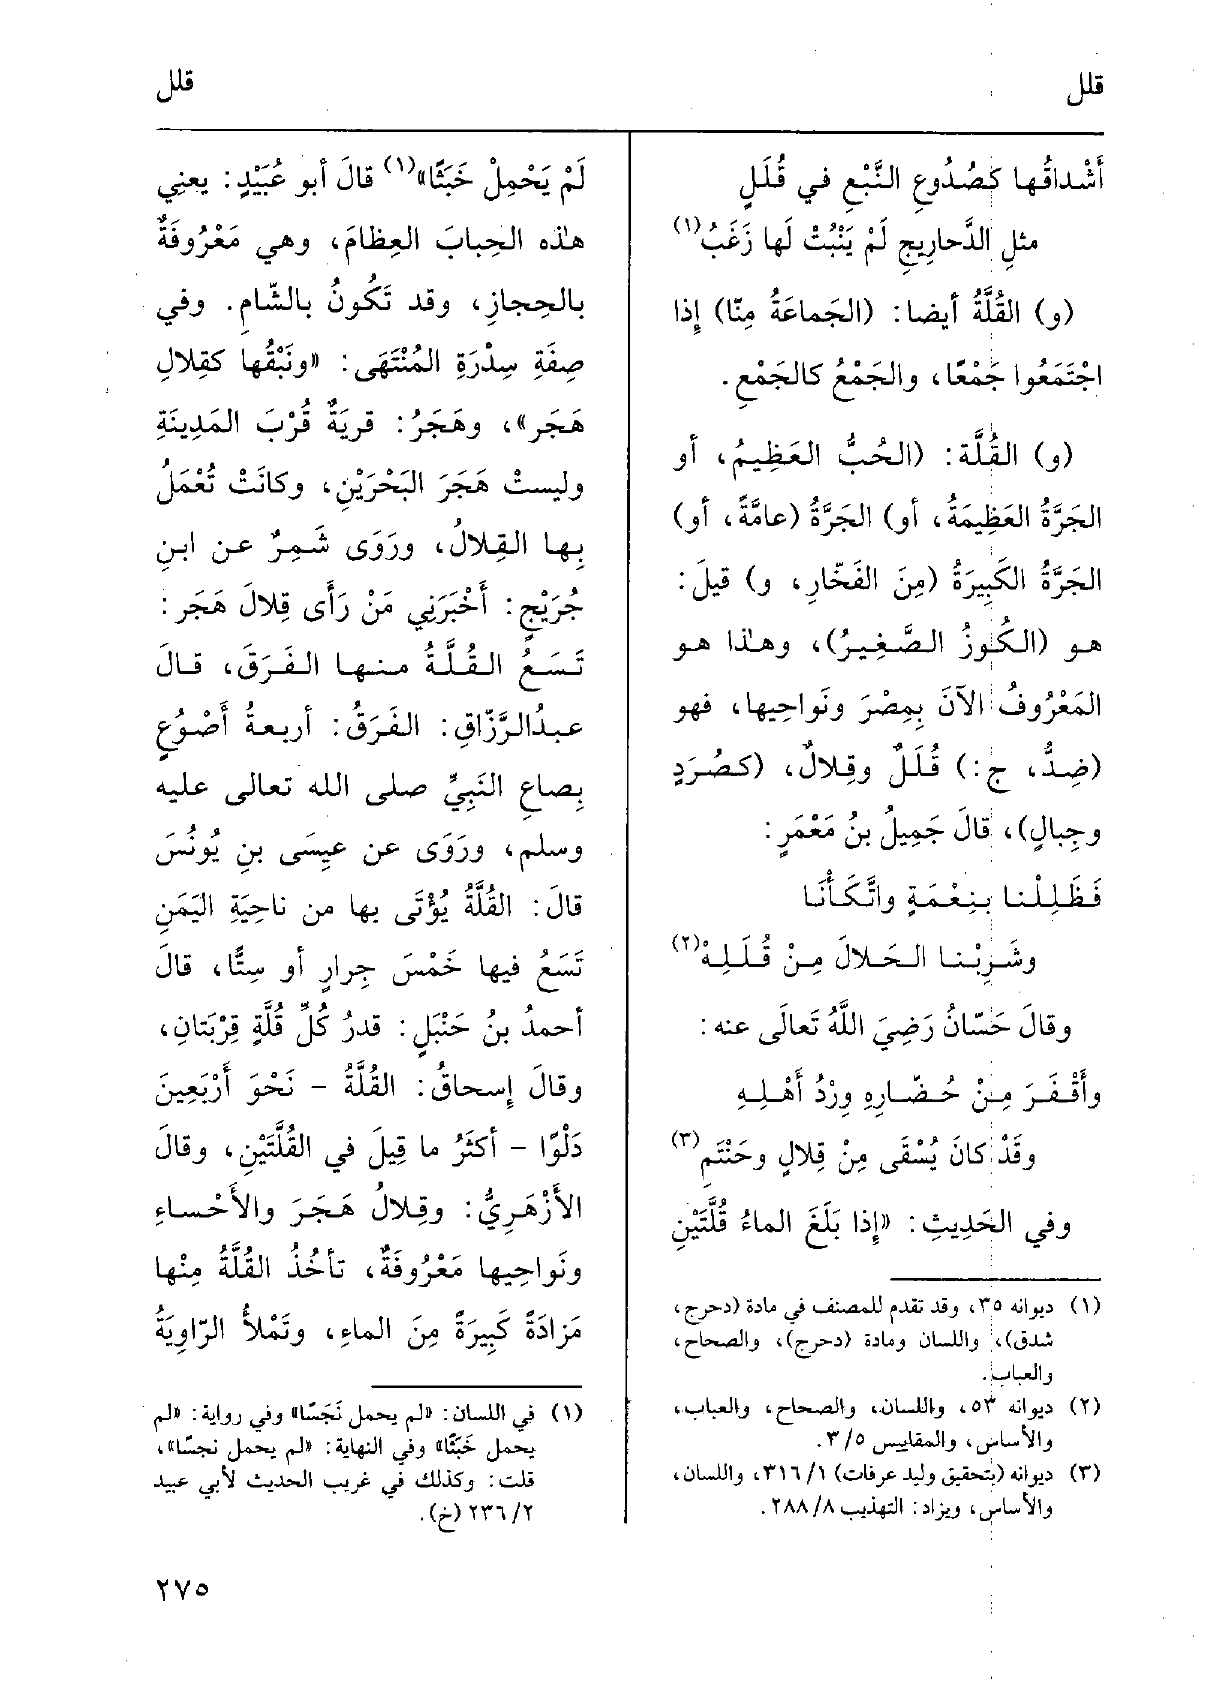 قلل
قلل
أَشْداقُها كَصُدُوعِ النَّبْعِ في قُلَلٍ
مثلِ الدَّحارِيجِ لَمْ يَنْبُتْ لَها زَغَبُ(١)
(و) القُلَّةُ أيضا: (الجَماعَةُ مِنّا) إِذا
اجْتَمَعُوا جَمْعًا، والجَمْعُ كالجَمْعِ.
(و) القُلَّة: (الحُبُّ العَظِيمُ، أو
الجَرَّةُ العَظِيمَةُ، أو) الجَرَّةُ (عامَّةً، أو)
الجَرَّةُ الكَبِيرَةُ (مِنَ الفَخّارِ، و) قيلَ:
هو (الكُوزُ الصَّغِيرُ)، وهـٰذا هو
المَعْرُوفُ الآنَ بِمِصْرَ ونَواحِيها، فهو
(ضِدٌّ، ج:) قُلَلٌ وقِلالٌ، (كصُرَدٍ
وجِبالٍ)، قالَ جَمِيلُ بنُ مَعْمَرٍ:
فَظَلِلْنا بِنِعْمَةٍ واتَّكَأْنَا
وشَرِبْنا الحَلالَ مِنْ قُلَلِهْ(٢)
وقالَ حَسّانُ رَضِيَ اللَّهُ تَعالَى عنه:
وأَقْفَرَ مِنْ حُضّارِهِ وِرْدُ أَهْلِهِ
وقَدْ كانَ يُسْقَى مِنْ قِلالٍ وحَنْتَمِ(٣)
وفي الحَدِيثِ: «إِذا بَلَغَ الماءُ قُلَّتَيْنِ
(١) ديوانه ٣٥، وقد تقدم للمصنف في مادة (دحرج،
شدق)، واللسان ومادة (دحرج)، والصحاح،
والعباب.
(٢) ديوانه ٥٣، واللسان، والصحاح، والعباب،
والأساس، والمقاييس ٣/٥.
(٣) ديوانه (بتحقيق وليد عرفات) ٣١٦/١، واللسان،
والأساس، ويزاد: التهذيب ٢٨٨/٨.
لَمْ يَحْمِلْ خَبَثًا»(١) قالَ أبو عُبَيْدٍ: يعنِي
هـٰذه الحِبابَ العِظامَ، وهي مَعْرُوفَةٌ
بالحِجازِ، وقد تَكُونُ بالشّام. وفي
صِفَةِ سِدْرَةِ المُنْتَهَى: «ونَبْقُها كقِلالِ
هَجَر»، وهَجَرُ: قريَةٌ قُرْبَ المَدِينَةِ
وليستْ هَجَرَ البَحْرَيْنِ، وكانَتْ تُعْمَلُ
بِها القِلالُ، ورَوَى شَمِرٌ عن ابنِ
جُرَيْجٍ: أَخْبَرَنِي مَنْ رَأَى قِلالَ هَجَر:
تَسَعُ القُلَّةُ منها الفَرَقَ، قالَ
عبدُالرَّزّاقِ: الفَرَقُ: أربعةُ أَصْوُعٍ
بِصاعِ النَبِيِّ صلى الله تعالى عليه
وسلم، ورَوَى عن عِيسَى بنِ يُونُسَ
قالَ: القُلَّةُ يُؤْتَى بها من ناحِيَةِ اليَمَنِ
تَسَعُ فيها خَمْسَ جِرارٍ أو سِتًّا، قالَ
أحمدُ بنُ حَنْبَلٍ: قدرُ كُلِّ قُلَّةٍ قِرْبَتانِ،
وقالَ إِسحاقُ: القُلَّةُ - نَحْوَ أَرْبَعِينَ
دَلْوًا - أكثَرُ ما قِيلَ في القُلَّتَيْنِ، وقالَ
الأَزْهَرِيُّ: وقِلالُ هَجَرَ والأَحْساءِ
ونَواحِيها مَعْرُوفَةٌ، تأخُذُ القُلَّةُ مِنْها
مَزادَةً كَبِيرَةً مِنَ الماءِ، وتَمْلأُ الرّاوِيَةُ
(١) في اللسان: «لم يحمل نَجَسًا» وفي رواية: «لم
يحمل خَبَثًا» وفي النهاية: «لم يحمل نجسًا»،
قلت: وكذلك في غريب الحديث لأبي عبيد
٢٣٦/٢ (خ).
٢٧٥